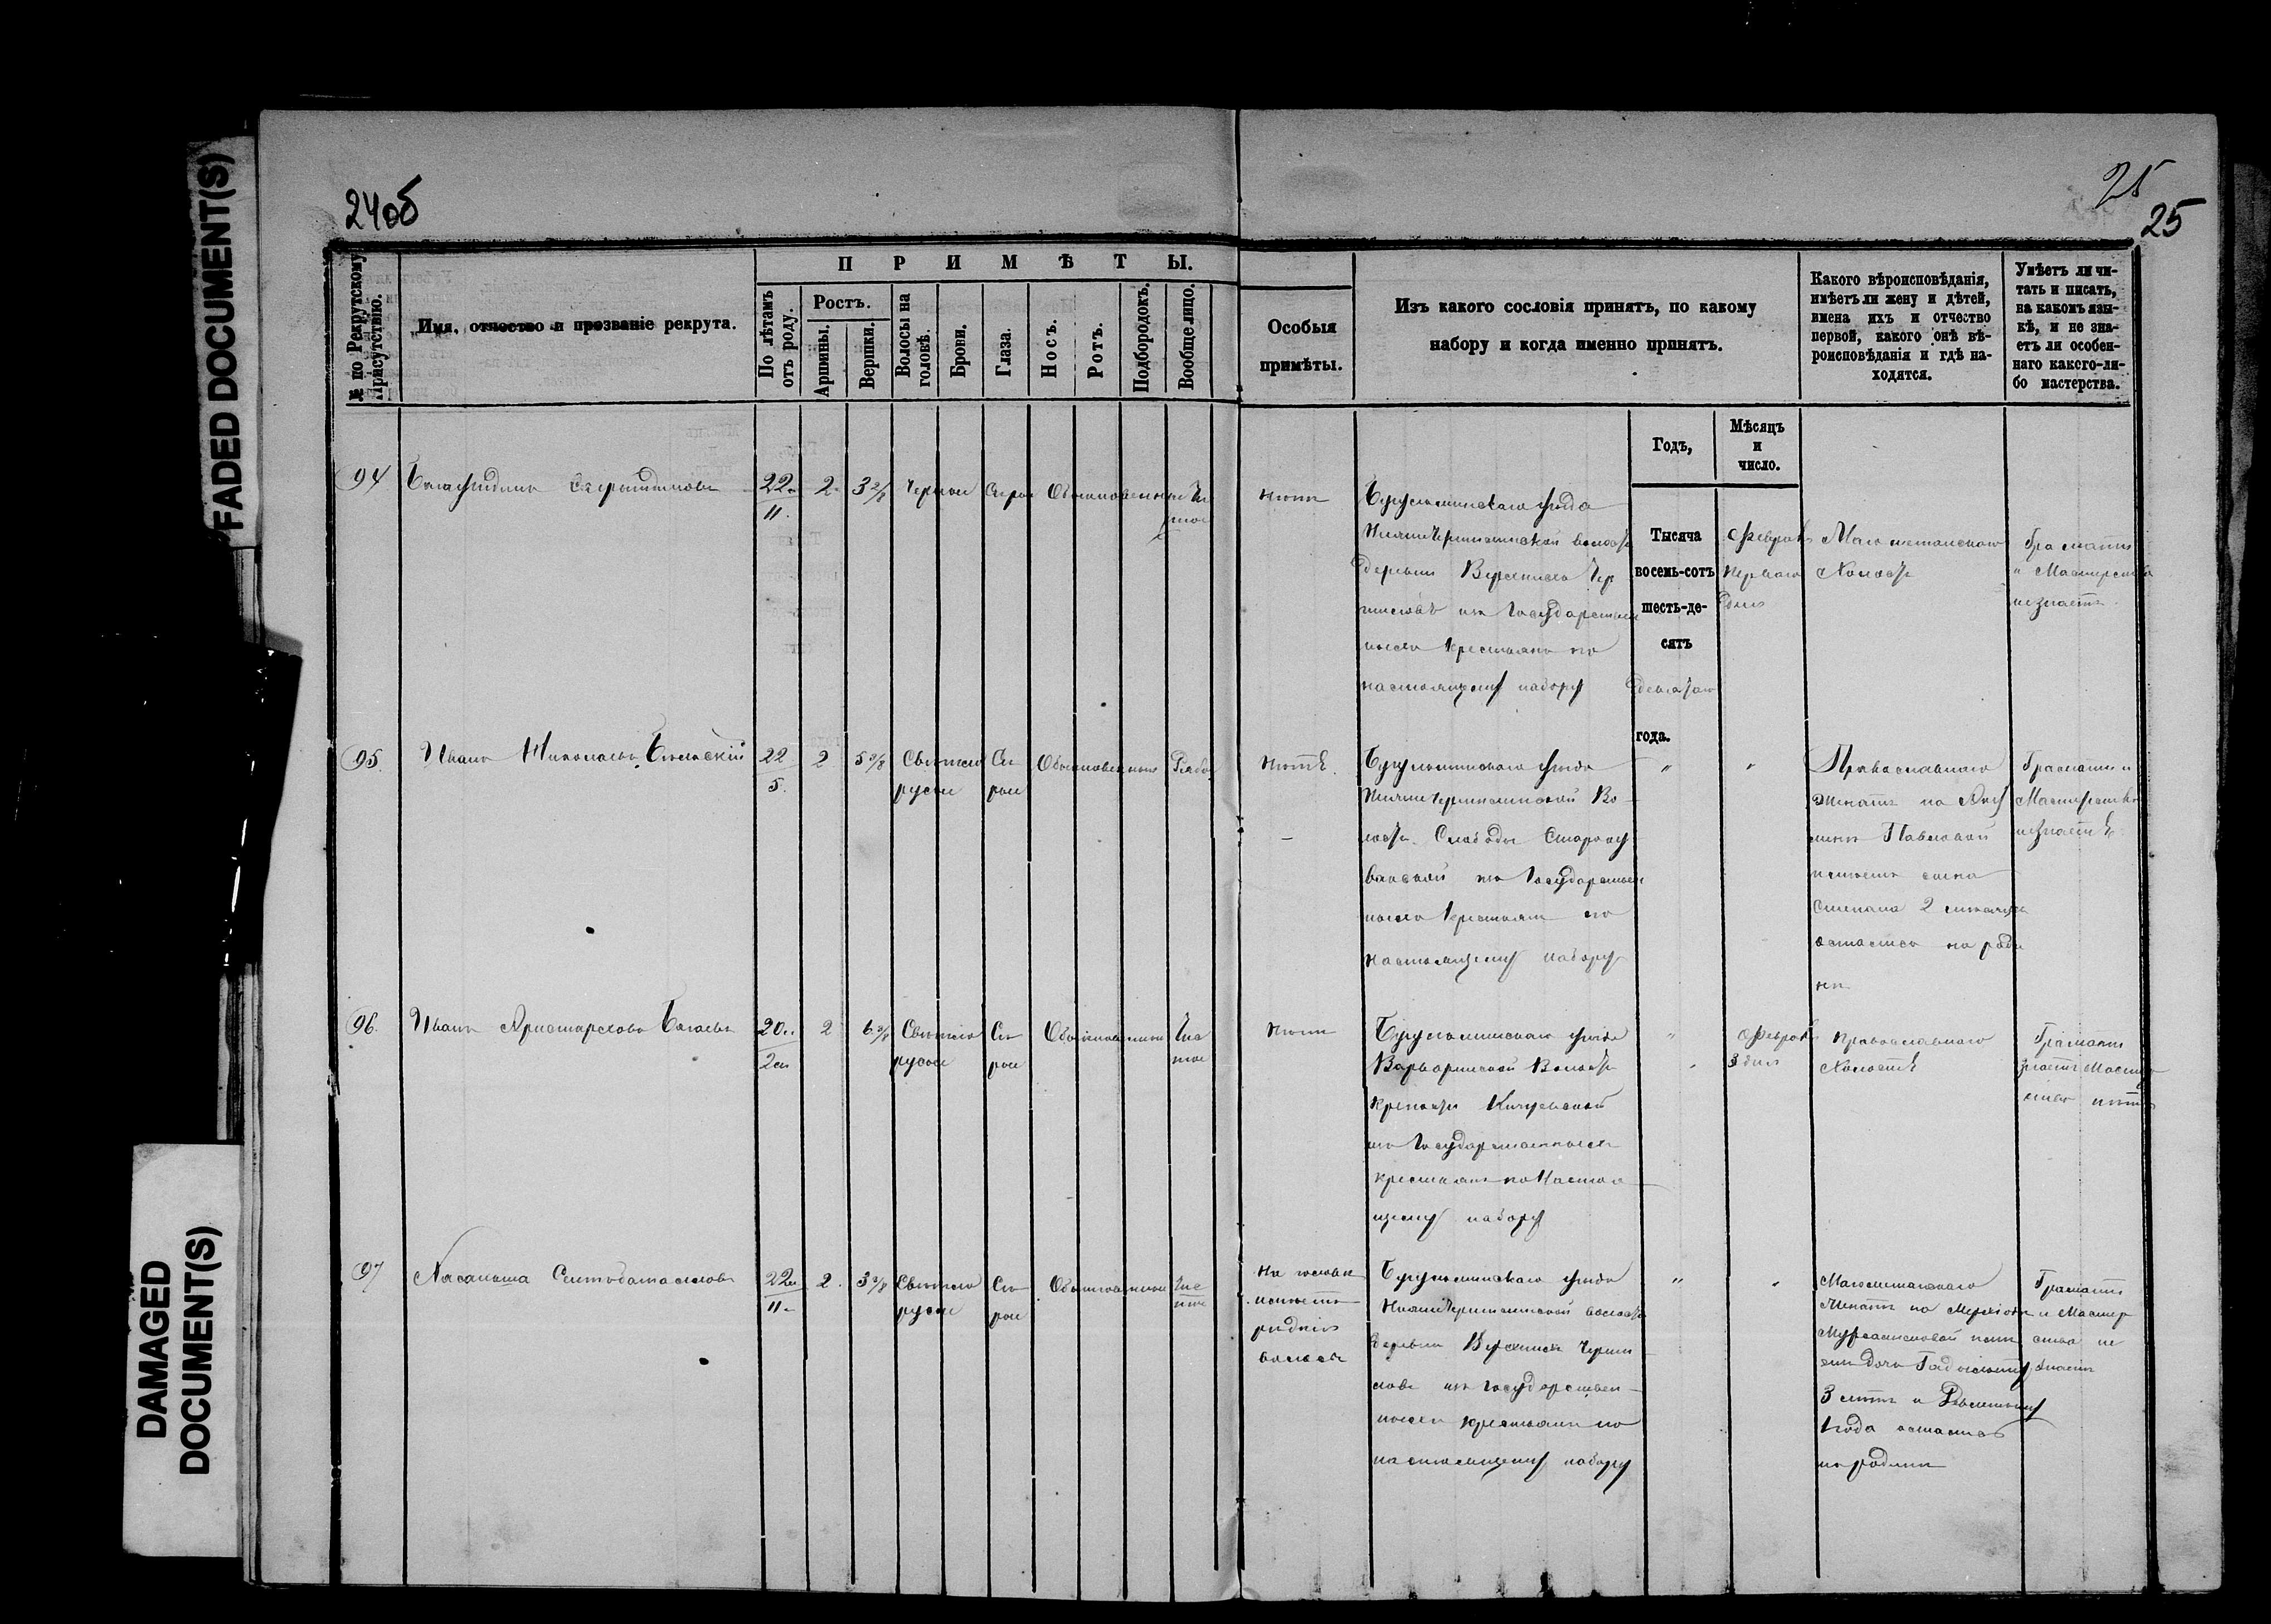 FADED DOCUMENT(S)
DAMAGED
DOCUMENT(S)
24об
25
25
№ по Рекрутскому
Присутствію.
Имя, отчество и прозваніе рекрута.
ПРИМѢТЫ.
По лѣтамъ
отъ роду.
Ростъ.
Аршины.
Вершки.
Волосы на
головѣ.
Брови.
Глаза.
Носъ.
Ротъ.
Подбородокъ.
Вообще лицо.
Особыя
примѣты.
Изъ какого сословія принятъ, по какому
набору и когда именно принятъ.
Какого вѣроисповѣданія,
имѣетъ ли жену и дѣтей,
имена ихъ и отчество
первой, какого онѣ вѣ-
роисповѣданія и гдѣ на-
ходятся.
Умѣетъ ли чи-
тать и писать,
на какомъ язы-
кѣ, и не зна-
етъ ли особен-
наго какого-ли-
бо мастерства.
Годъ,
Мѣсяцъ
и
число.
94
22
11
2
3 2/8
Черные
Серые
Обыкновенные
Чи
стое
нетъ
Бугульминскаго уезда
волости
деревни Верхнихъ Чер
шиловъ изъ Государствен
ныхъ крестьянъ по
настоящему набору
Тысяча
восемь-сотъ
шесть-де-
сятъ
девятаго
года.
Февраля
перваго
дня
Магометанскаго
Холостъ
Грамоты
и Мастерства
незнаетъ
95
Иванъ Николаевъ
22
5
2
5 3/8
Светло
русые
Се
рые
Обыкновенные
Рябое
Нетъ.
Бугульминскаго уезда
Во
лости Слободы
изъ Государствен
ныхъ Крестьянъ по
Настоящему набору
"
"
Православнаго
женатъ на Аку
лине Павловой
имеетъ сына
Степана 2
остались на роди
не
Грамоты и
Мастерства
незнаетъ
96
Иванъ Аристарховъ
20
2
2
6 3/8
Светло
русые
Се
рые
Обыкновенные
Чис
тое
Нетъ
Бугульминскаго уезда
Варваринской Волости
крепости Кичуевской
изъ Государственныхъ
крестьянъ по Настоя
щему набору
"
Февраля
3 дня
Православнаго
Холостъ
Грамоты
знаетъ Мастер
ства нетъ
97
22
11
2
3 3/8
Светло
русые
Се
рые
Обыкновенные
Чис
тое
На голове
имеетъ
редкие
волосы
Бугульминскаго уезда
волости
деревни Верхнихъ Черши
ловъ изъ Государствен
ныхъ крестьянъ по
настоящему набору
"
"
Магометанскаго
Женатъ на
име
етъ дочь
3 летъ и
1 года остались
на родине
Грамоты
и Мастер
ства не
знаетъ